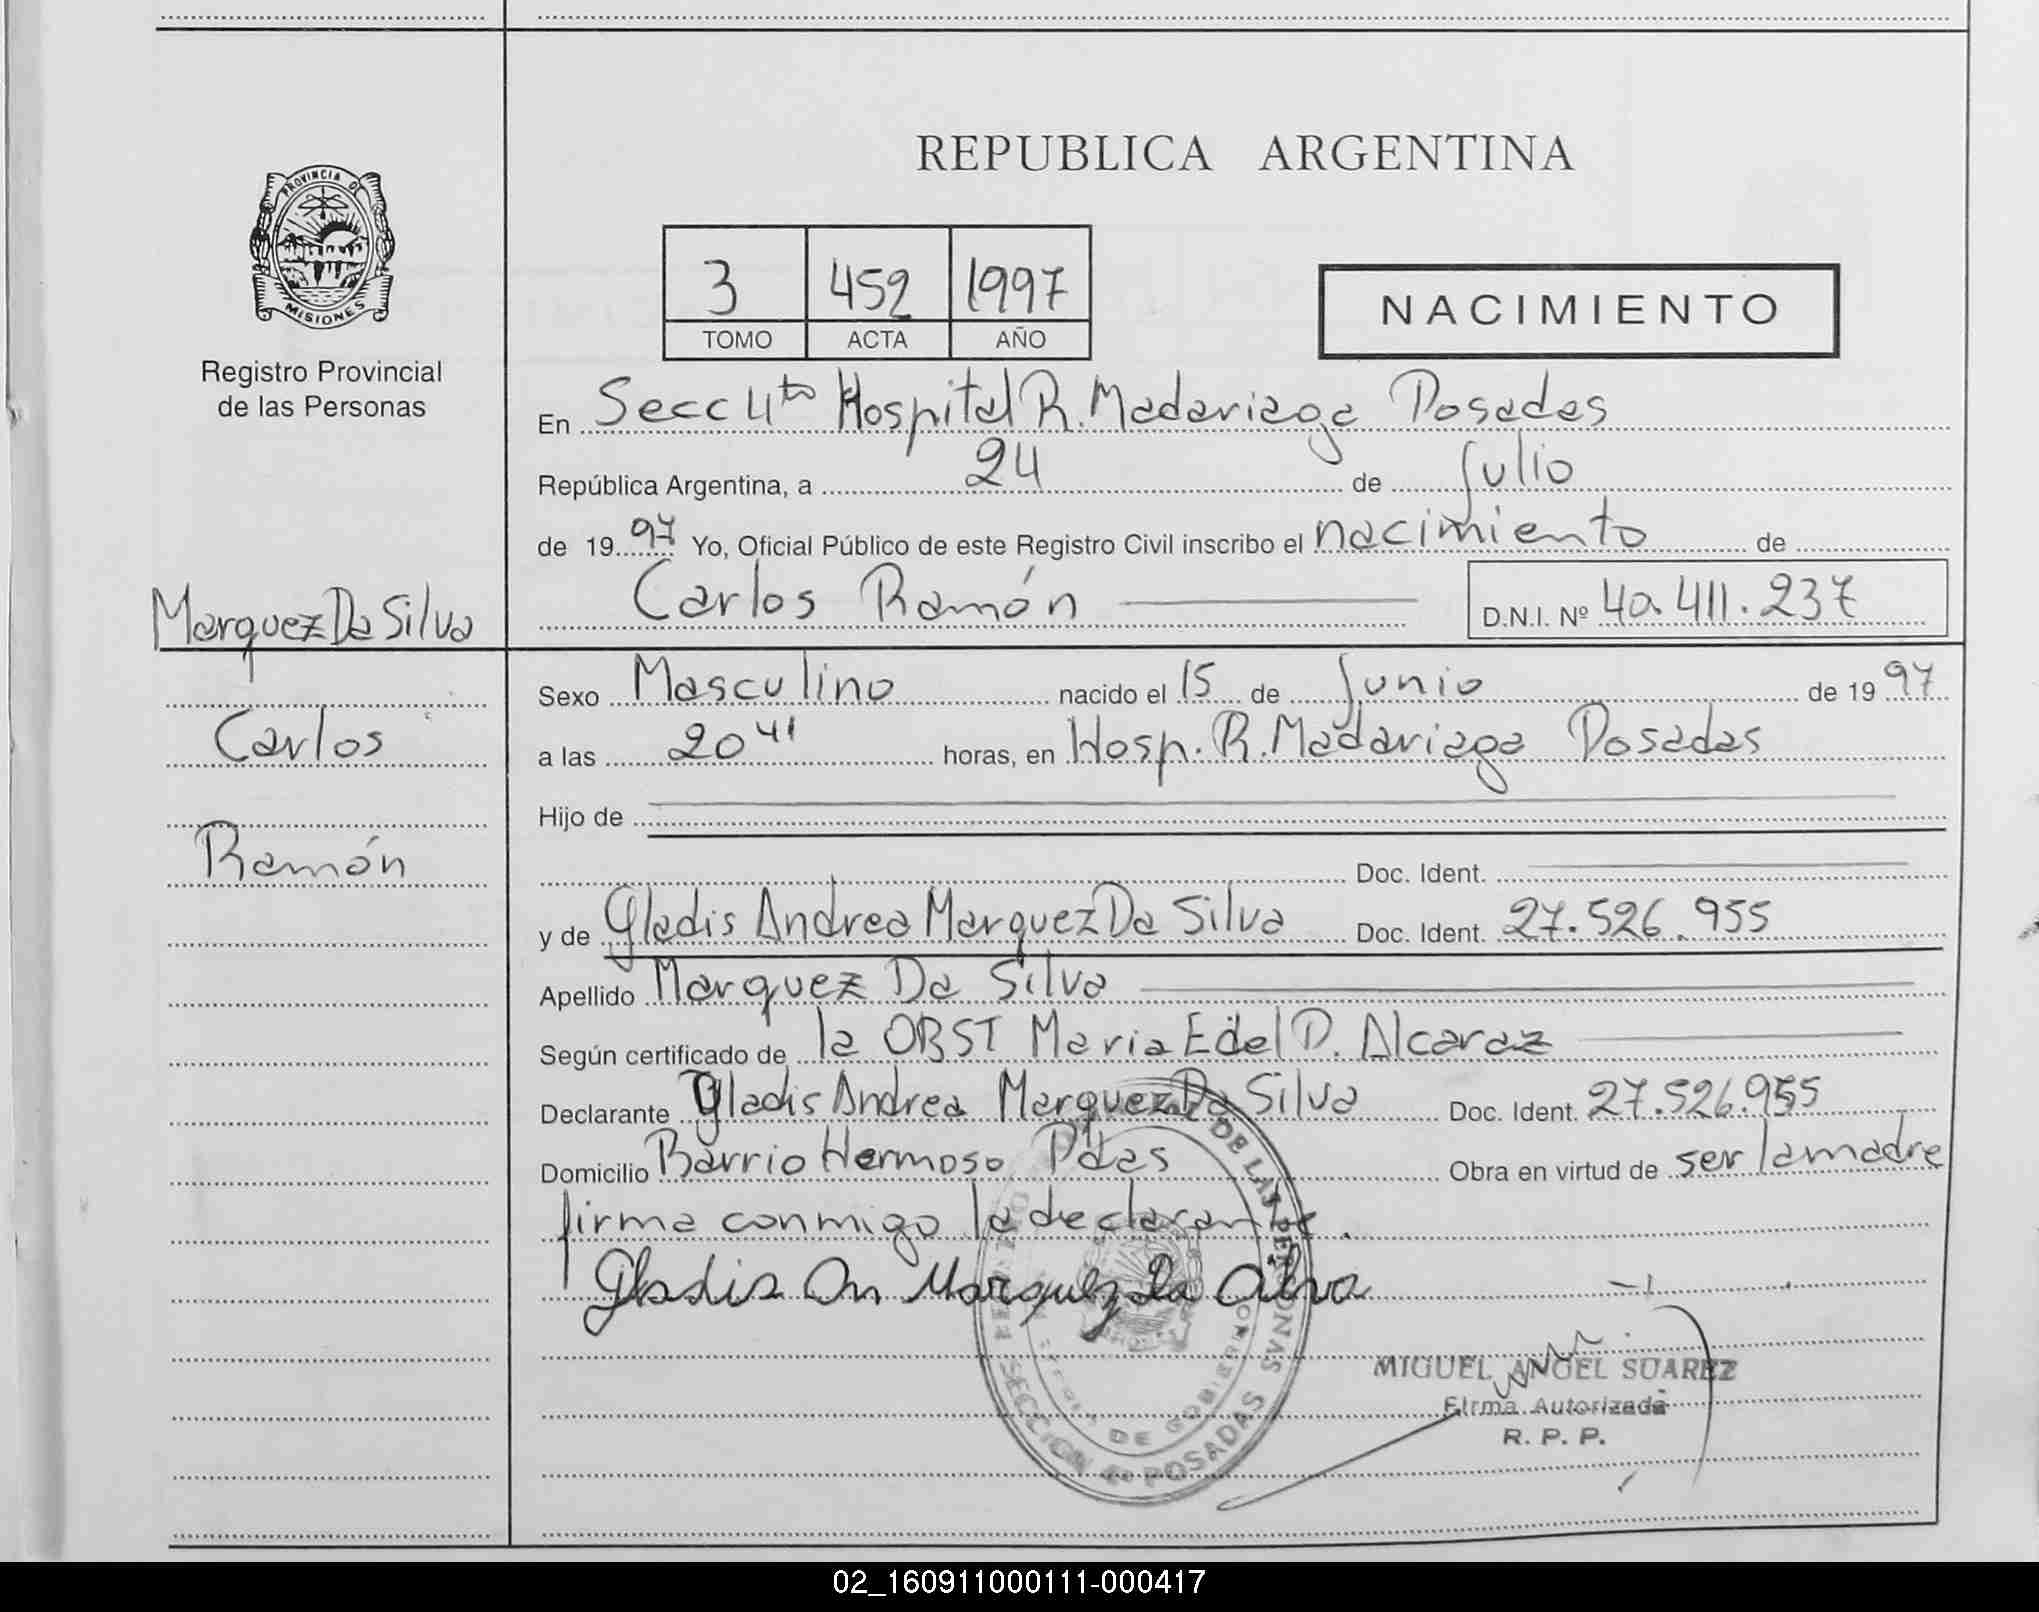 REPUBLICA ARGENTINA
PROVINCIA DE
MISIONES
Registro Provincial
de las Personas
3 452 1997
TOMO ACTA AÑO
NACIMIENTO
En Secc 4ta Hospital R. Madariaga Posadas
República Argentina, a 24 de Julio
de 1997 Yo, Oficial Público de este Registro Civil inscribo el nacimiento de
Carlos Ramón D.N.I. Nº 40.411.237
Marquez Da Silva
Carlos
Ramón
Sexo Masculino nacido el 15 de Junio de 1997
a las 20 41 horas, en Hosp. R. Madariaga Posadas
Hijo de
Doc. Ident.
y de Gladis Andrea Marquez Da Silva Doc. Ident. 27.526.955
Apellido Marquez Da Silva
Según certificado de la OBST Maria Edel D. Alcaraz
Declarante Gladis Andrea Marquez Da Silva Doc. Ident. 27.526.955
Domicilio Barrio Hermoso Pdas Obra en virtud de ser la madre
firma conmigo la declarante.
Gladis An Marquez Da Silva
DE LAS PERSONAS
DE GOBIERNO
SECCION 4ª POSADAS
MIGUEL ANGEL SUAREZ
Firma Autorizada
R. P. P.
02_160911000111-000417